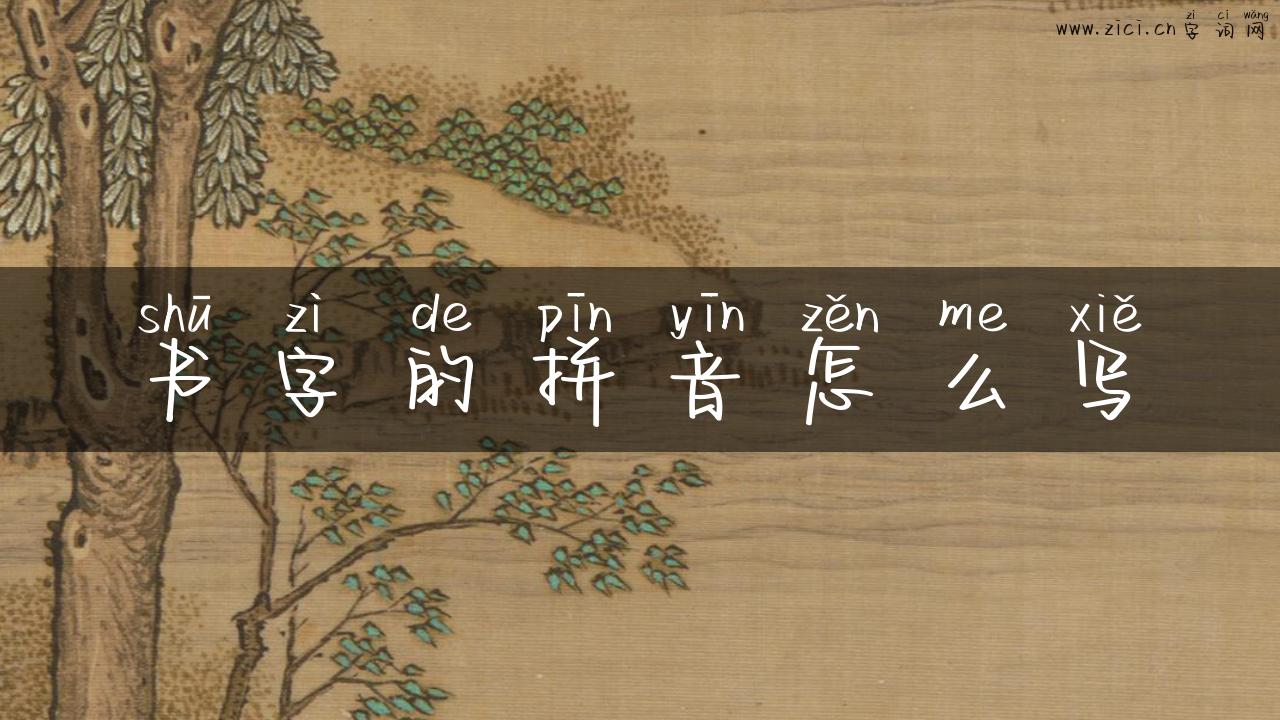 zì cí wǎng
www.zici.cn 字词网
shū zì de pīn yīn zěn me xiě
书字的拼音怎么写